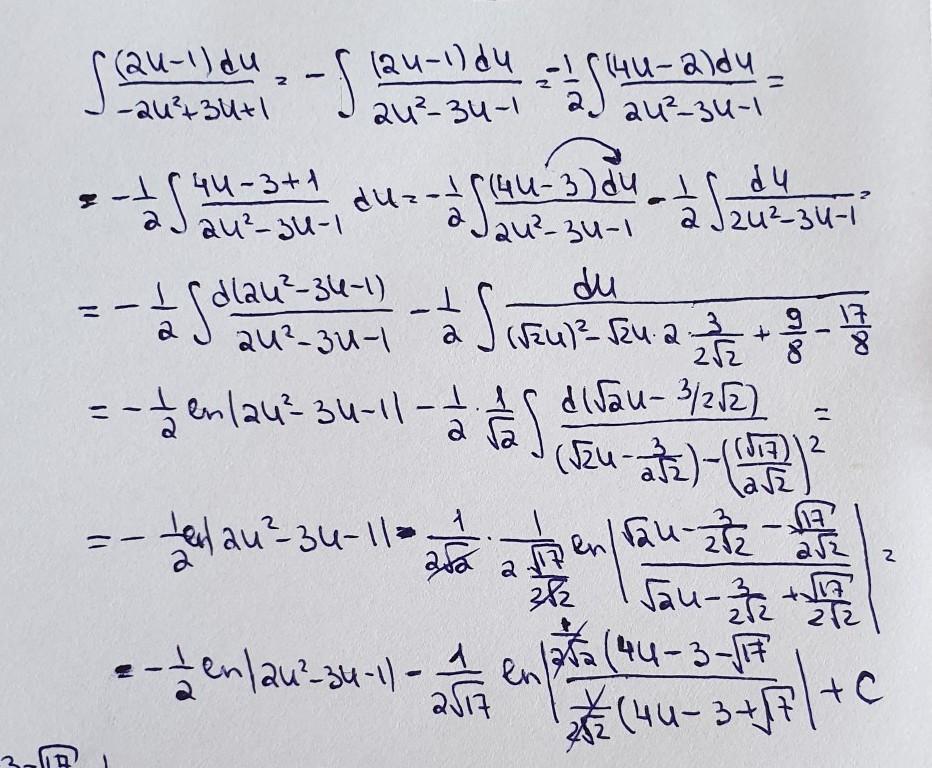 ∫ (2u-1)du / -2u²+3u+1 = - ∫ (2u-1)du / 2u²-3u-1 = -1/2 ∫ (4u-2)du / 2u²-3u-1 =
= -1/2 ∫ 4u-3+1 / 2u²-3u-1 du = -1/2 ∫ (4u-3)du / 2u²-3u-1 - 1/2 ∫ du / 2u²-3u-1 =
= -1/2 ∫ d(2u²-3u-1) / 2u²-3u-1 - 1/2 ∫ du / (√2u)²-√2u·2·3/2√2 + 9/8 - 17/8
= -1/2 ln|2u²-3u-1| - 1/2 · 1/√2 ∫ d(√2u - 3/2√2) / (√2u - 3/2√2) - ((√17)/2√2)² =
= -1/2 ln|2u²-3u-1| - 1/2√2 · 1 / 2 √17/2√2 ln| √2u - 3/2√2 - √17/2√2 / √2u - 3/2√2 + √17/2√2 | =
= -1/2 ln|2u²-3u-1| - 1/2√17 ln| 1/2√2 (4u-3-√17 / 1/2√2 (4u-3+√7 | + C
3-√17